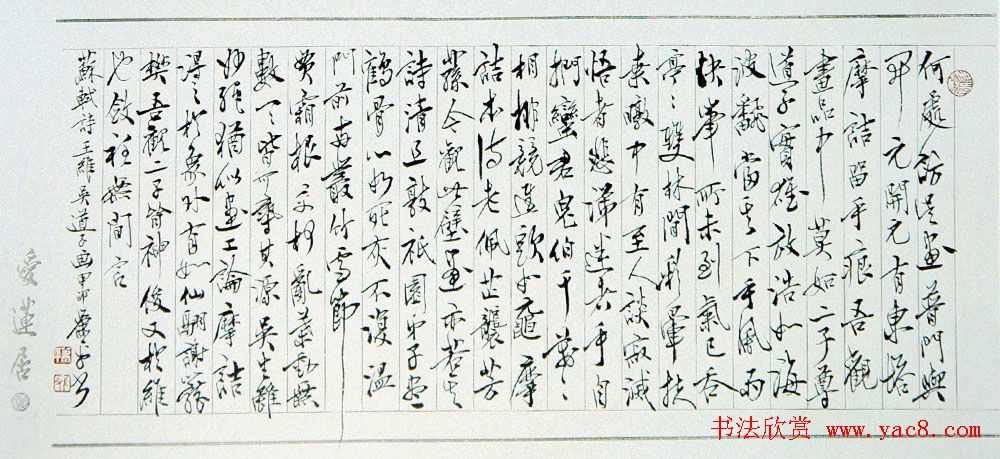 何處訪吳畫普門與
開元開元有東塔
摩詰留手痕吾觀
畫品中莫如二子尊
道子實雄放浩如海
波翻當其下手風雨
快筆所未到氣已吞
亭〻雙林間彩暈扶
桑暾中有至人談寂滅
悟者悲涕迷者手自
捫蠻君鬼伯千萬〻
相排競進頭如黿摩
詰本詩老佩芷襲芳
蓀今觀此壁畫亦若其
詩清且敦祇園弟子盡
鶴骨心如死灰不復溫
門前兩叢竹雪節
貫霜根交柯亂葉動無
數一一皆可尋其源吳生雖
妙絕猶似畫工論摩詰
得之於象外有如仙翮謝籠
樊吾觀二子皆神俊又於維
也斂衽無間言
蘇軾詩王維吳道子画
愛蓮居
书法欣赏 www.yac8.com